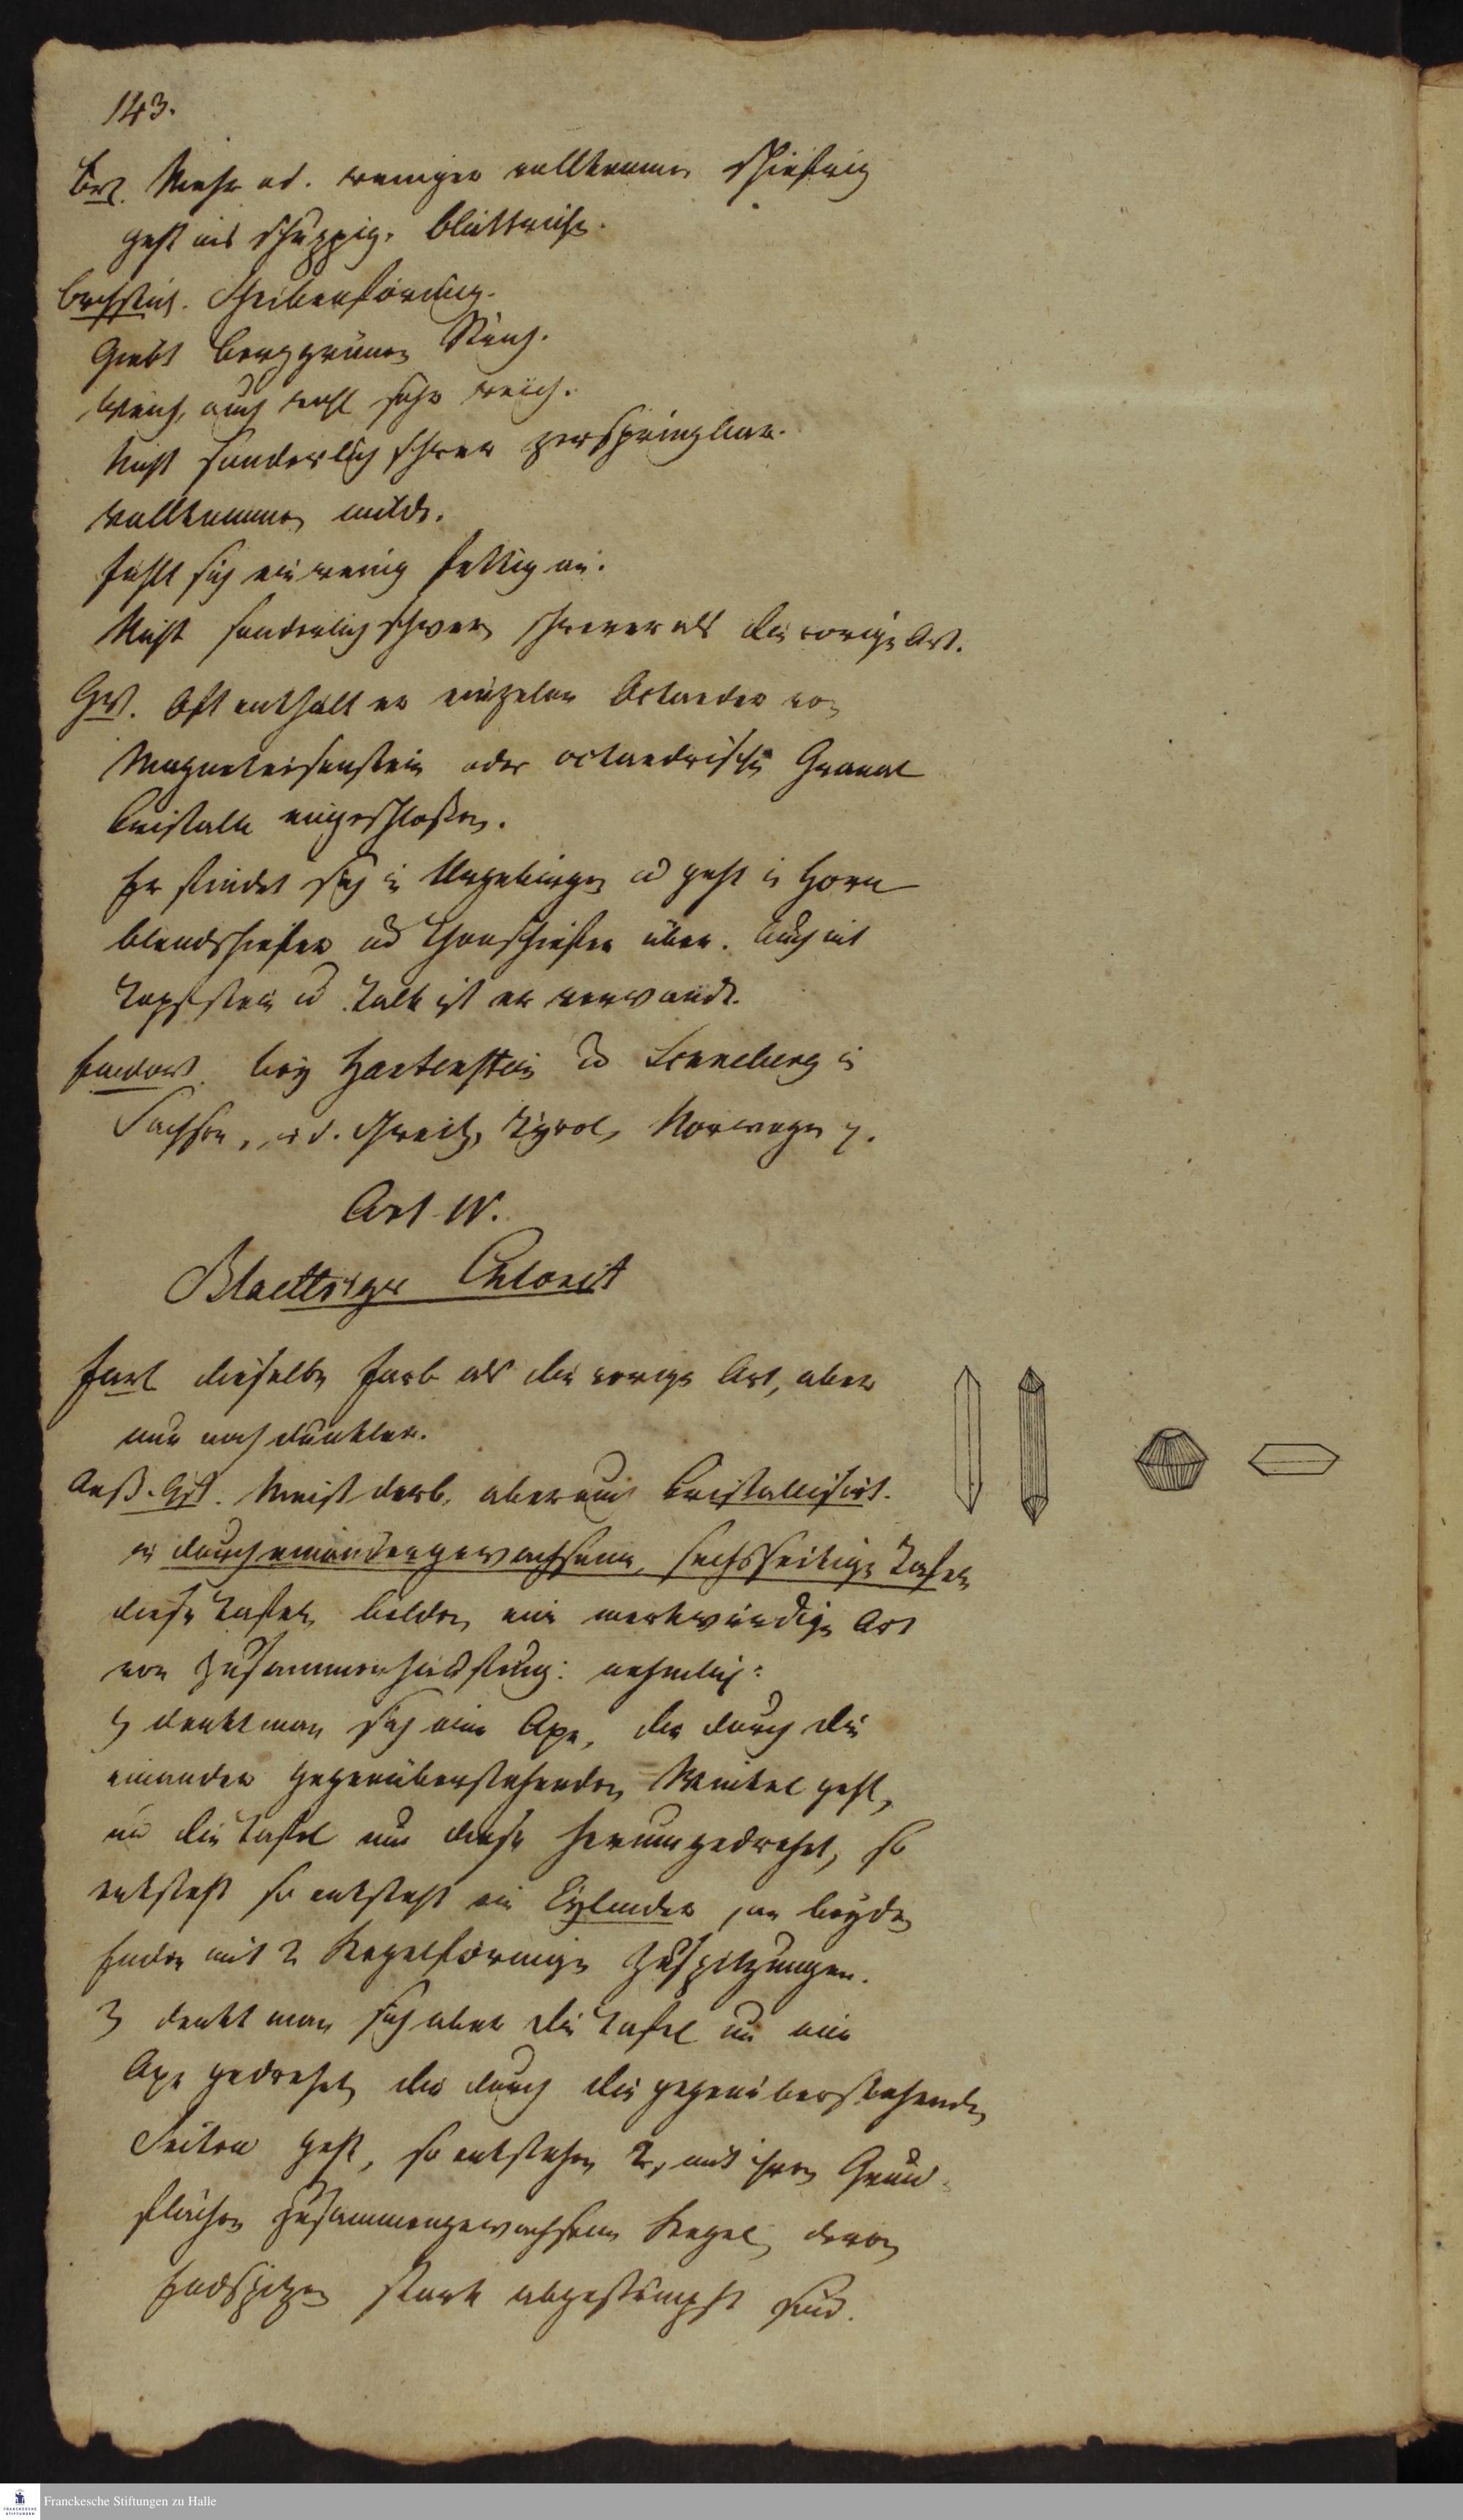 143.
Br. Mehr od. weniger vollkommen schiefrig
geht ins schuppig. blättrichs.
Brchstük. Scheibenförmig.
Giebt berggrünen Strich.
Weich, auch wohl sehr weich.
Nicht sonderlich schwer zerspringbar.
Vollkommen milde.
fühlt sich ein wenig fettig an.
Nicht sonderlich schwer, schwerer als die vorige Art.
Oft enthält er einzelne Octaeder von
Magneteisenstein oder octaedrische Granat
Cristalle eingeschloßen.
Er findet sich in Urgebirgen u geht in Horn
blendschiefer und Thonschiefer über. Auch mit
Topfstein u Talk ist er verwandt.
Fundort. bey Hartenstein u Sonneberg in
Sachsen, in d. Schweitz, Tyrol, Norwegen
Art IV.
Blaettriger Chlorit
Farb dieselbe Farb als die vorige Art, aber
nur noch dunkler.
Aeuß. Gst. Meist derb, aber auch Cristallisirt.
in durcheinandergewachsene, sechsseitige Tafeln
diese Tafeln bilden eine merkwürdige Art
von Zusammenhäufung: nehmlich:
denkt man sich eine Axe, die durch die
einander gegenüberstehenden Winkel geht,
und die Tafel um diese herumgedreht, so
entsteht so entsteht ein Cylinder, an beyden
Enden mit 2 kegelförmige Zuspitzungen.
denkt man sich aber die Tafel um eine
Axe gedreht, die durch die gegenüberstehenden
Seiten geht, so entstehen 2, mit ihren Grund-
flächen zusammengewachsene Kegel, deren
Endspitzen stark abgestumpft sind.
Franckesche Stiftungen zu Halle